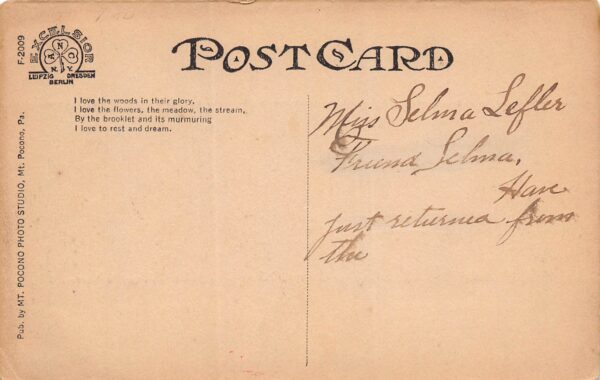 F-2009
EXCELSIOR
A N C
N.Y.
LEIPZIG DRESDEN
BERLIN
POST CARD
I love the woods in their glory,
I love the flowers, the meadow, the stream,
By the brooklet and its murmuring
I love to rest and dream.
Pub. by MT. POCONO PHOTO STUDIO, Mt. Pocono, Pa.
Miss Selma Lefler
Friend Selma,
Have
just returned from
the